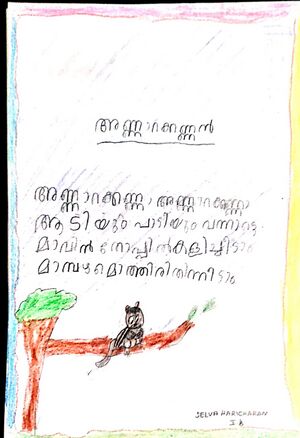 അണ്ണാറക്കണ്ണൻ
അണ്ണാറക്കണ്ണാ അണ്ണാറക്കണ്ണാ
ആടിയും പാടിയും വന്നാട്ടെ
മാവിൻ തോപ്പിൽ കളിച്ചീടാം
മാമ്പഴമൊത്തിരി തിന്നീടാം
SELVA HARICHARAN
I B